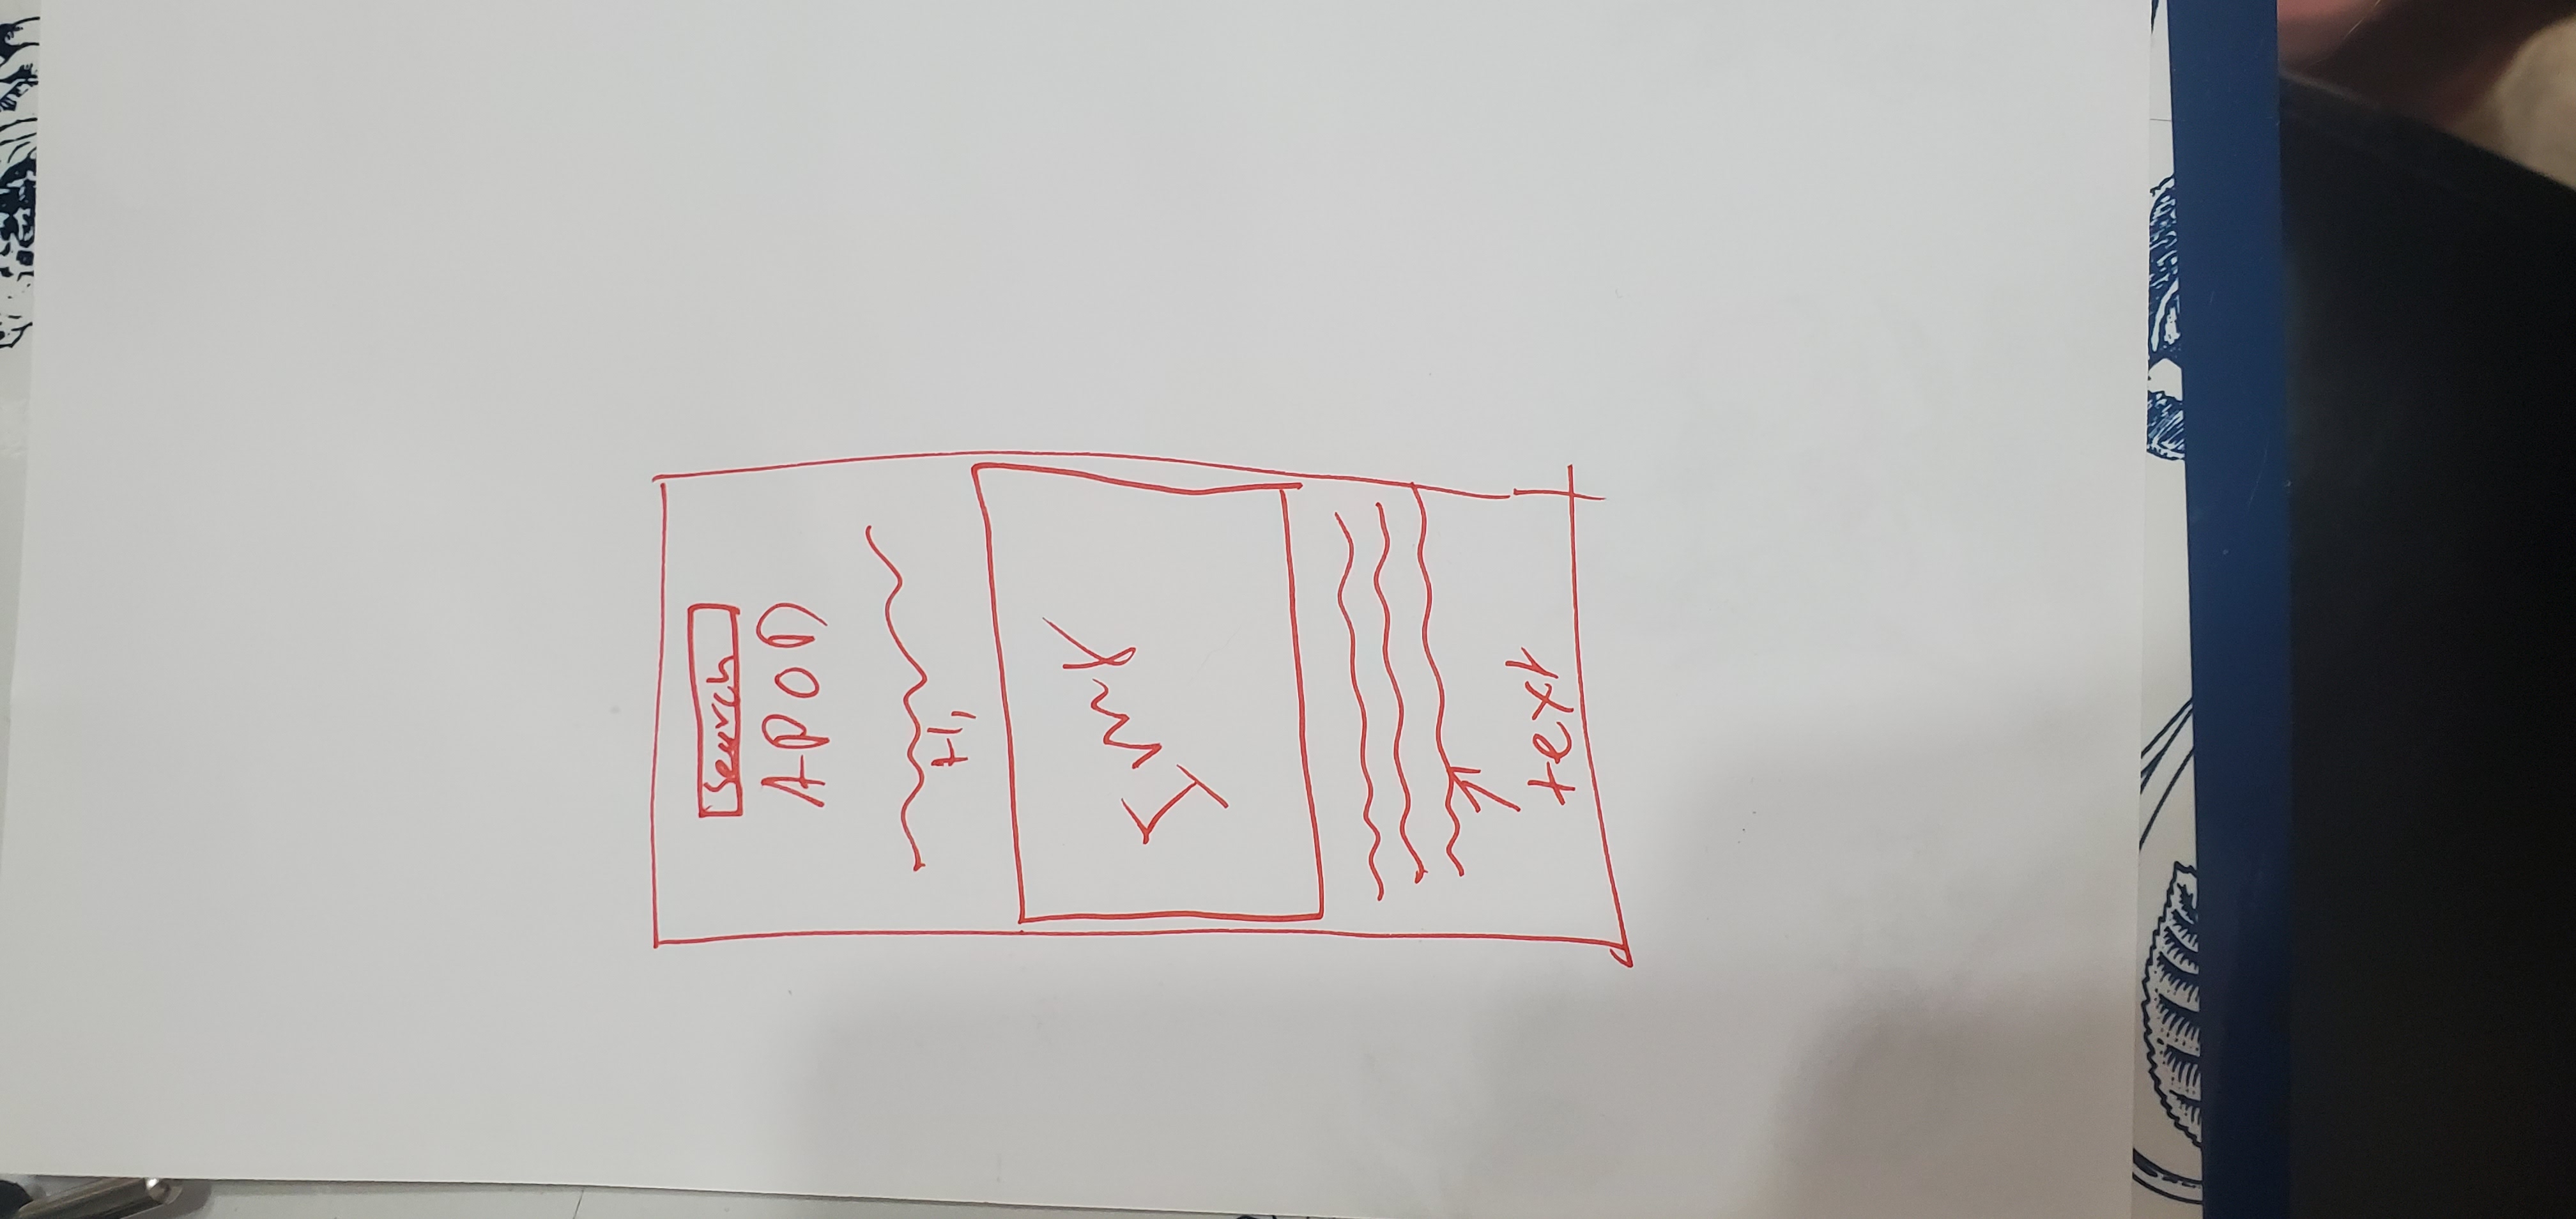 Search
APOD
H1
Img
text